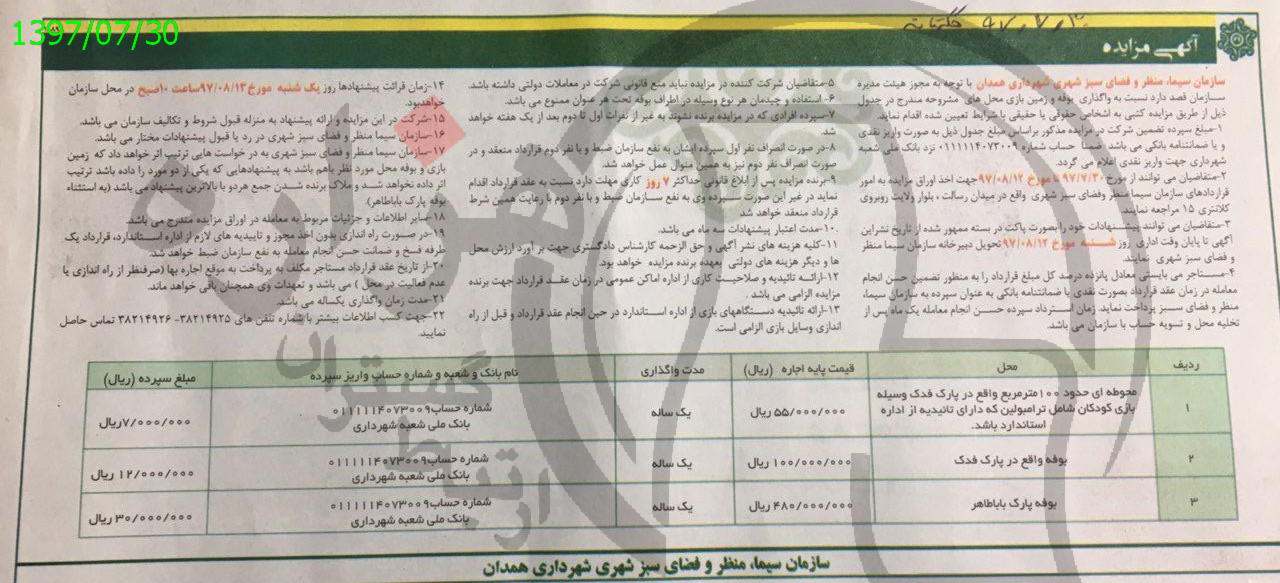 1397/07/30
آگهی مزایده
سازمان سیما، منظر و فضای سبز شهری شهرداری همدان با توجه به مجوز هیئت مدیره
سازمان قصد دارد نسبت به واگذاری بوفه و زمین بازی محل های مشروحه مندرج در جدول
ذیل از طریق مزایده کتبی به اشخاص حقوقی یا حقیقی با شرایط تعیین شده اقدام نماید.
۱-مبلغ سپرده تضمین شرکت در مزایده مذکور براساس مبلغ جدول ذیل به صورت واریز نقدی
و یا ضمانتنامه بانکی می باشد ضمناً حساب شماره ۰۱۱۱۱۱۴۰۷۳۰۰۹ نزد بانک ملی شعبه
شهرداری جهت واریز نقدی اعلام می گردد.
۲-متقاضیان می توانند از مورخ ۹۷/۷/۳۰ تا مورخ ۹۷/۰۸/۱۲ جهت اخذ اوراق مزایده به امور
قراردادهای سازمان سیما،منظر وفضای سبز شهری واقع در میدان رسالت ، بلوار ولایت روبروی
کلانتری ۱۵ مراجعه نمایند.
۳-متقاضیان می توانند پیشنهادات خود را بصورت پاکت در بسته ممهور شده از تاریخ نشر این
آگهی تا پایان وقت اداری روز شنبه مورخ ۹۷/۰۸/۱۲ تحویل دبیرخانه سازمان سیما منظر
و فضای سبز شهری نمایند.
۴-مستاجر می بایستی معادل پانزده درصد کل مبلغ قرارداد را به منظور تضمین حسن انجام
معامله در زمان عقد قرارداد بصورت نقدی یا ضمانتنامه بانکی به عنوان سپرده به سازمان سیما،
منظر و فضای سبز پرداخت نماید. زمان استرداد سپرده حسن انجام معامله یک ماه پس از
تخلیه محل و تسویه حساب با سازمان می باشد.
۵-متقاضیان شرکت کننده در مزایده نباید منع قانونی شرکت در معاملات دولتی داشته باشد.
۶- استفاده و چیدمان هر نوع وسیله در اطراف بوفه تحت هر عنوان ممنوع می باشد.
۷-سپرده افرادی که در مزایده برنده نشوند به غیر از نفرات اول تا دوم بعد از یک هفته خواهد
شد.
۸-در صورت انصراف نفر اول سپرده ایشان به نفع سازمان ضبط و با نفر دوم قرارداد منعقد و در
صورت انصراف نفر دوم نیز به همین منوال عمل خواهد شد.
۹-برنده مزایده پس از ابلاغ قانونی حداکثر ۷ روز کاری مهلت دارد نسبت به عقد قرارداد اقدام
نماید در غیر این صورت سپرده وی به نفع سازمان ضبط و با نفر دوم با رعایت همین شرط
قرارداد منعقد خواهد شد
۱۰-مدت اعتبار پیشنهادات سه ماه می باشد.
۱۱-کلیه هزینه های نشر آگهی و حق الزحمه کارشناس دادگستری جهت بر آورد ارزش محل
ها و دیگر هزینه های دولتی بعهده برنده مزایده خواهد بود.
۱۲-ارائه تائیدیه و صلاحیت کاری از اداره اماکن عمومی در زمان عقد قرارداد جهت برنده
مزایده الزامی می باشد .
۱۳-ارائه تائیدیه دستگاههای بازی از اداره استاندارد در حین انجام عقد قرارداد و قبل از راه
اندازی وسایل بازی الزامی است.
۱۴-زمان قرائت پیشنهادها روز یک شنبه مورخ ۹۷/۰۸/۱۳ ساعت ۱۰صبح در محل سازمان
خواهدبود.
۱۵-شرکت در این مزایده و ارائه پیشنهاد به منزله قبول شروط و تکالیف سازمان می باشد.
۱۶-سازمان سیما منظر و فضای سبز شهری در رد یا قبول پیشنهادات مختار می باشد.
۱۷-سازمان سیما منظر و فضای سبز شهری به در خواست هایی ترتیب اثر خواهد داد که زمین
بازی و بوفه محل مورد نظر باهم باشد به پیشنهادهایی که یکی از دو مورد را داده باشد ترتیب
اثر داده نخواهد شد و ملاک برنده شدن جمع هردو با بالاترین پیشنهاد می باشد (به استثناء
بوفه پارک باباطاهر).
۱۸-سایر اطلاعات و جزئیات مربوط به معامله در اوراق مزایده مندرج می باشد.
۱۹-در صورت راه اندازی بدون اخذ مجوز و تاییدیه های لازم از اداره استاندارد، قرارداد یک
طرفه فسخ و ضمانت حسن انجام معامله به نفع سازمان ضبط خواهد شد.
۲۰-از تاریخ عقد قرارداد مستاجر مکلف به پرداخت به موقع اجاره بها (صرفنظر از راه اندازی یا
عدم فعالیت در محل ) می باشد و تعهدات وی همچنان باقی خواهد ماند.
۲۱-مدت زمان واگذاری یکساله می باشد.
۲۲-جهت کسب اطلاعات بیشتر با شماره تلفن های ۳۸۲۱۴۹۲۵- ۳۸۲۱۴۹۲۶ تماس حاصل
نمایید.
ردیف محل قیمت پایه اجاره (ریال) مدت واگذاری نام بانک و شعبه و شماره حساب واریز سپرده مبلغ سپرده (ریال)
۱ محوطه ای حدود ۱۰۰مترمربع واقع در پارک فدک وسیله
بازی کودکان شامل ترامبولین که دارای تائیدیه از اداره
استاندارد باشد.
۵۵/۰۰۰/۰۰۰ ریال یک ساله شماره حساب۰۱۱۱۱۱۴۰۷۳۰۰۹
بانک ملی شعبه شهرداری
۷/۰۰۰/۰۰۰ریال
۲ بوفه واقع در پارک فدک ۱۰۰/۰۰۰/۰۰۰ ریال یک ساله شماره حساب۰۱۱۱۱۱۴۰۷۳۰۰۹
بانک ملی شعبه شهرداری
۱۲/۰۰۰/۰۰۰ ریال
۳ بوفه پارک باباطاهر ۴۸۰/۰۰۰/۰۰۰ ریال یک ساله شماره حساب۰۱۱۱۱۱۴۰۷۳۰۰۹
بانک ملی شعبه شهرداری
۳۰/۰۰۰/۰۰۰ ریال
سازمان سیما، منظر و فضای سبز شهری شهرداری همدان